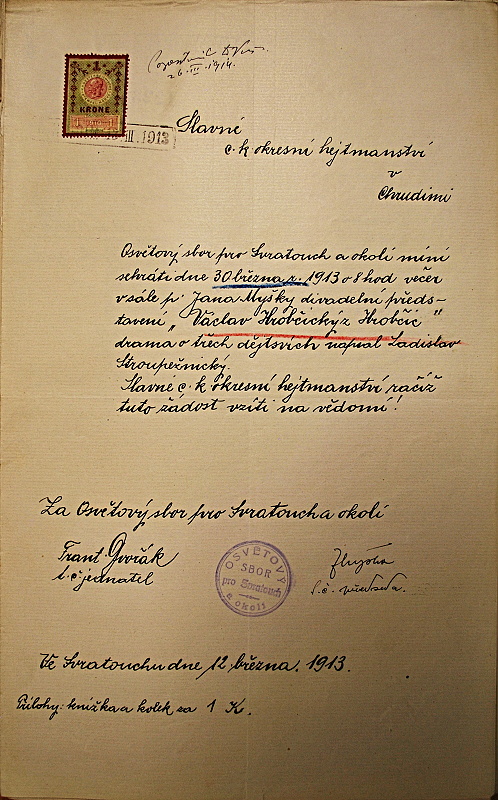 26.III.1914.
1
KRONE
III. 1913
Slavné
c. k. okresní hejtmanství
v
Chrudimi
Osvětový sbor pro Svratouch a okolí míní
sehráti dne 30 března r. 1913 o 8 hod večer
v sále p. Jana Myšky divadelní předs-
tavení „Václav Hrobčický z Hrobčic"
drama o třech dějstvích napsal Ladislav
Stroupežnický.
Slavné c. k. okresní hejtmanství račiž
tuto žádost vzíti na vědomí!
Za Osvětový sbor pro Svratouch a okolí
Frant. Dvořák
t. č. jednatel
t. č. předseda.
OSVĚTOVÝ
SBOR
pro Svratouch
a okolí
Ve Svratouchu dne 12, března. 1913.
Přílohy: knížka a kolek za 1 K.